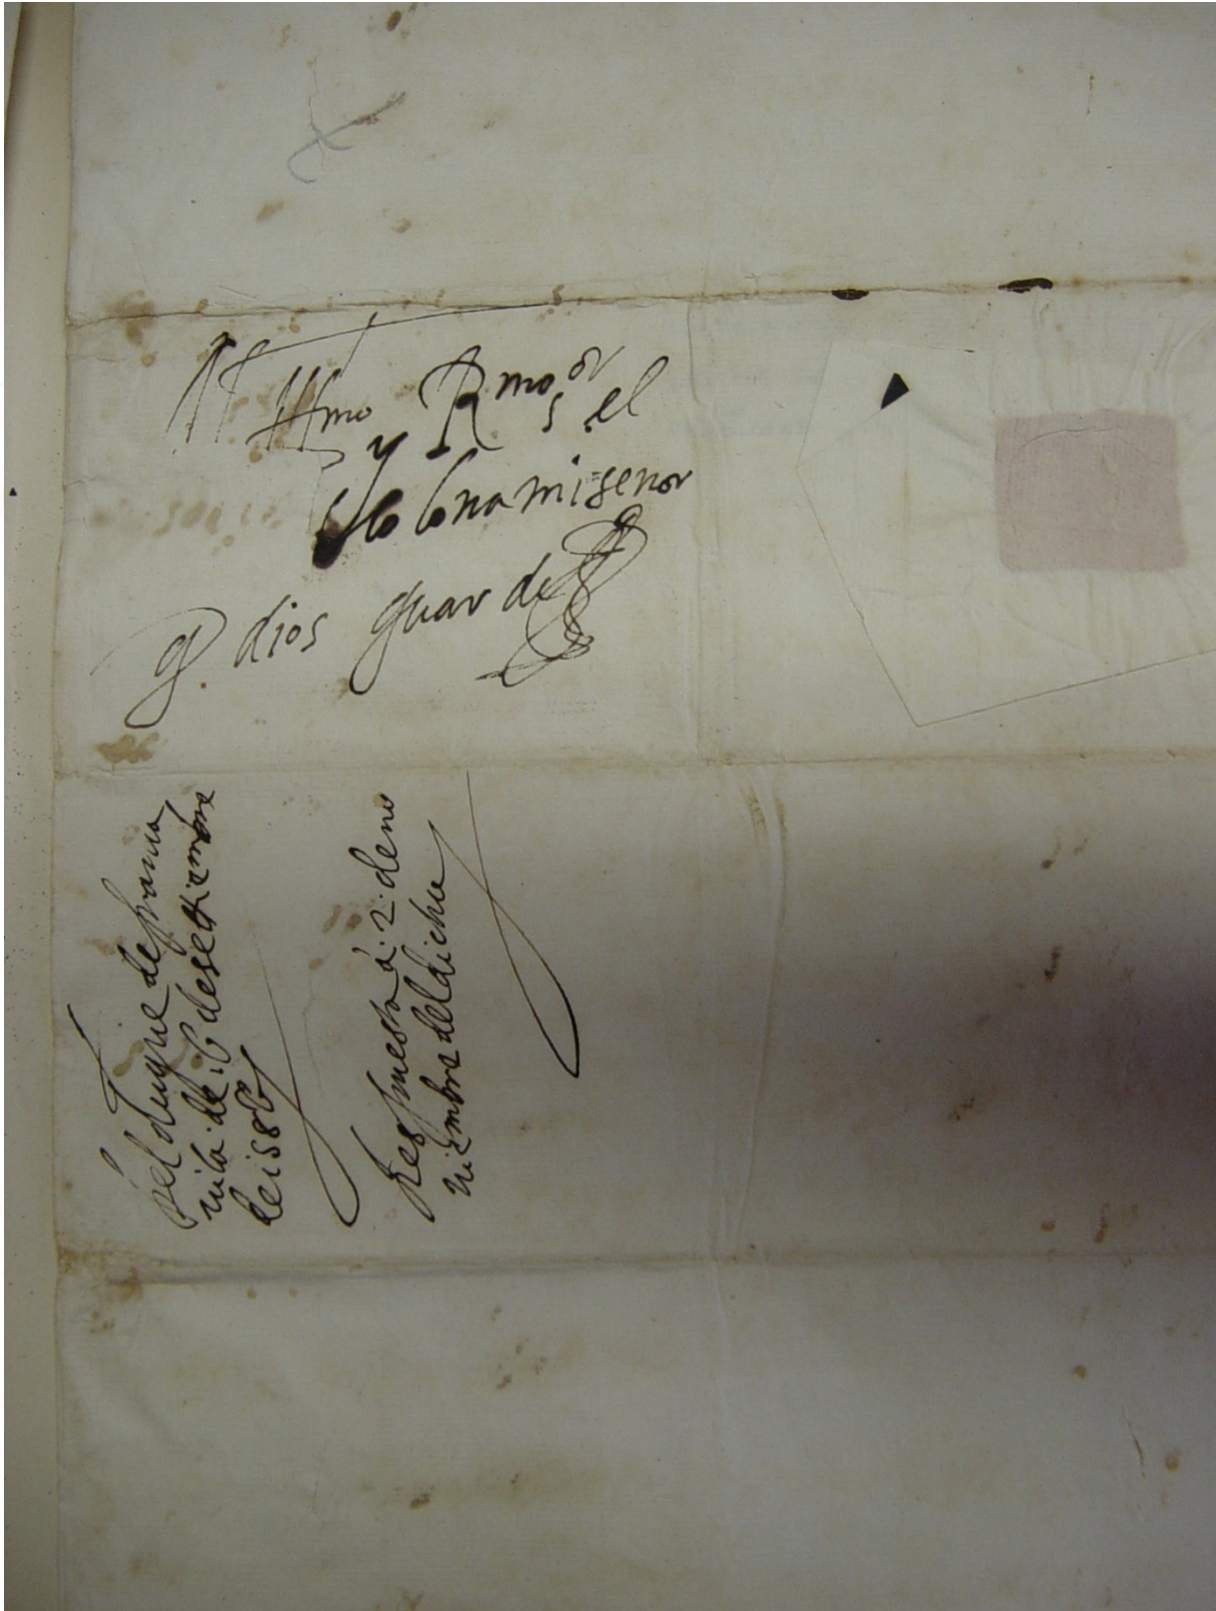 Al Illmo y Rmo sor el
Colona mi señor
q dios guarde
del duque de franca
vila de .6 de setiembre
de 1586
Respuesta á .2. de no
viembre del dicho